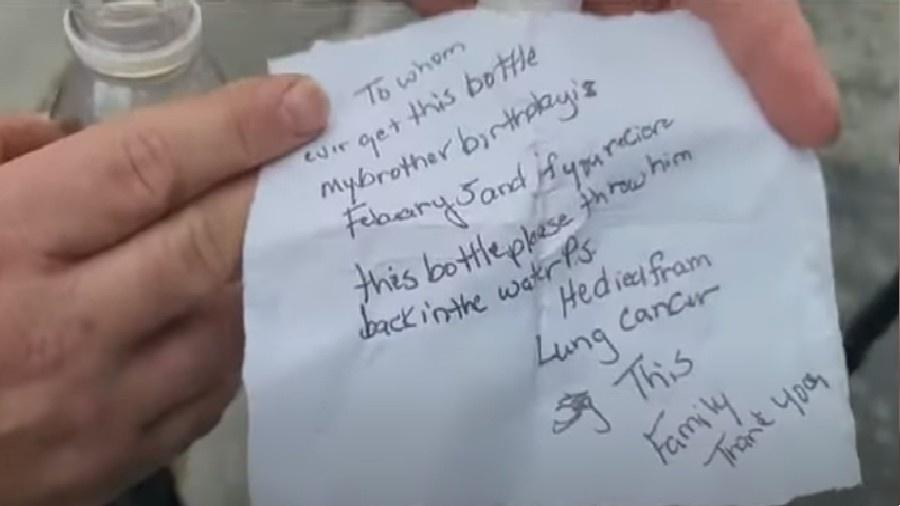 To whom
ever get this bottle
my brother birthday is
Febuary 5 and if you reciere
this bottle please throw him
back in the watr P.S.
He died fram
Lung cancur
This
Family
Thank you